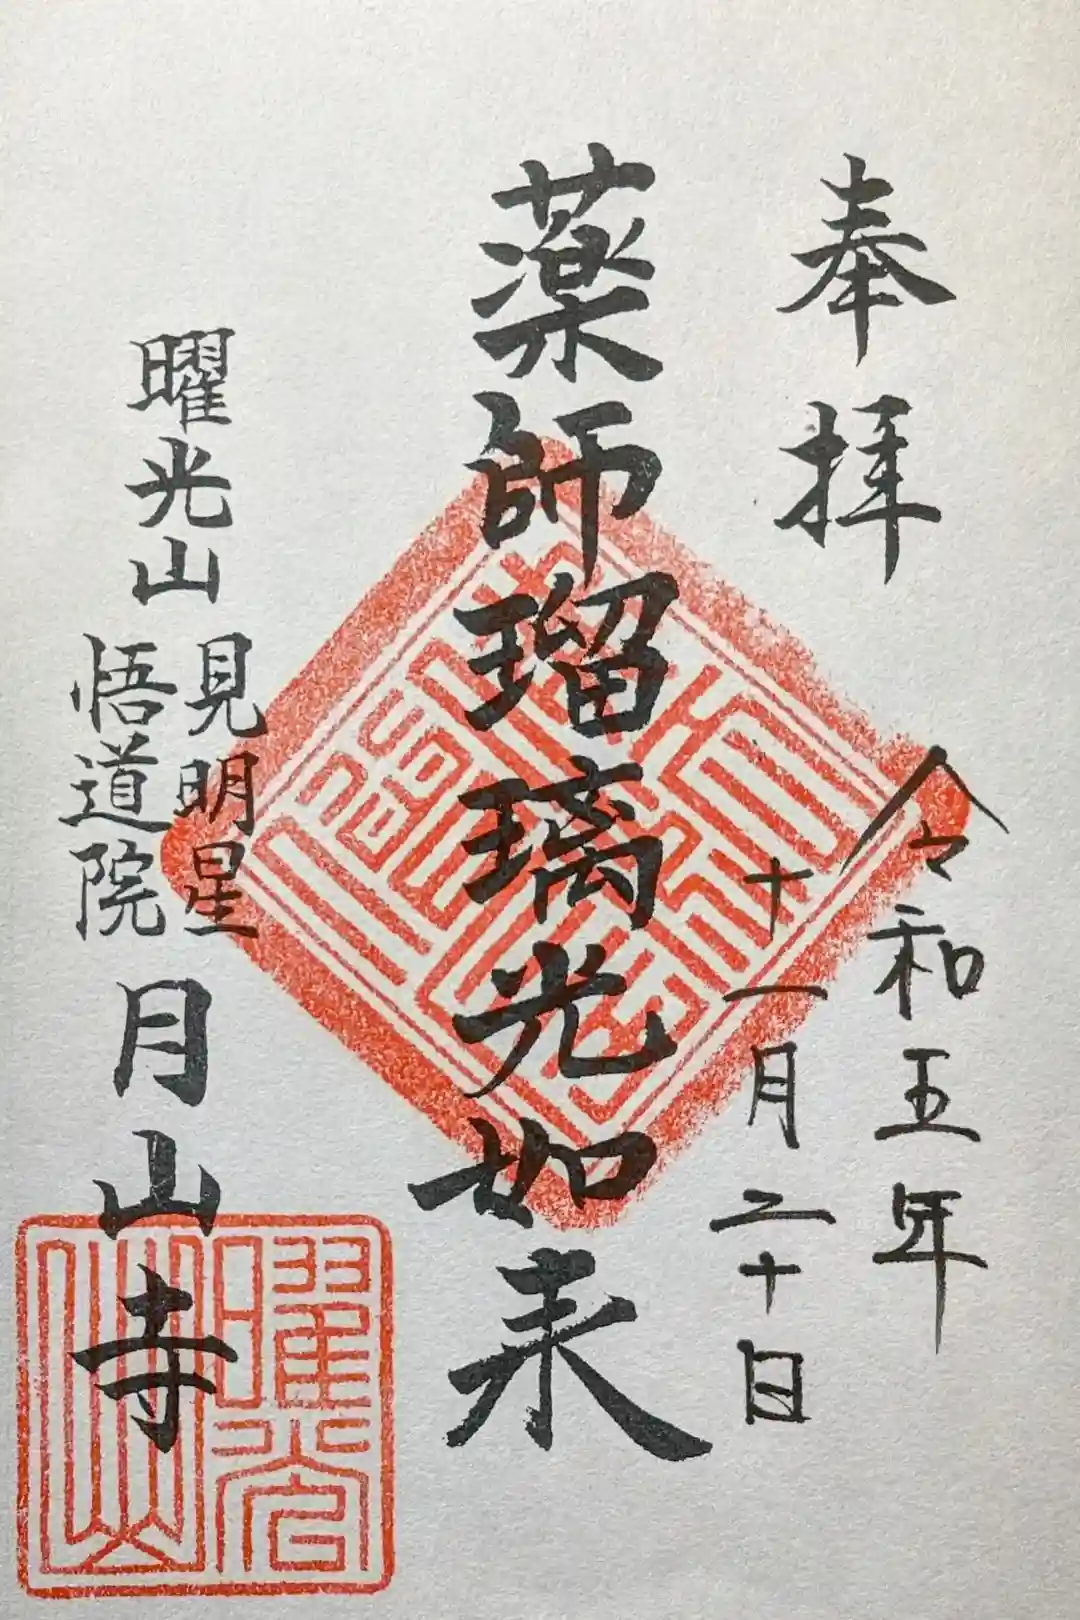 奉拝
令和五年
十一月二十日
薬師瑠璃光如来
曜光山
見明星
悟道院
月山寺
曜光山